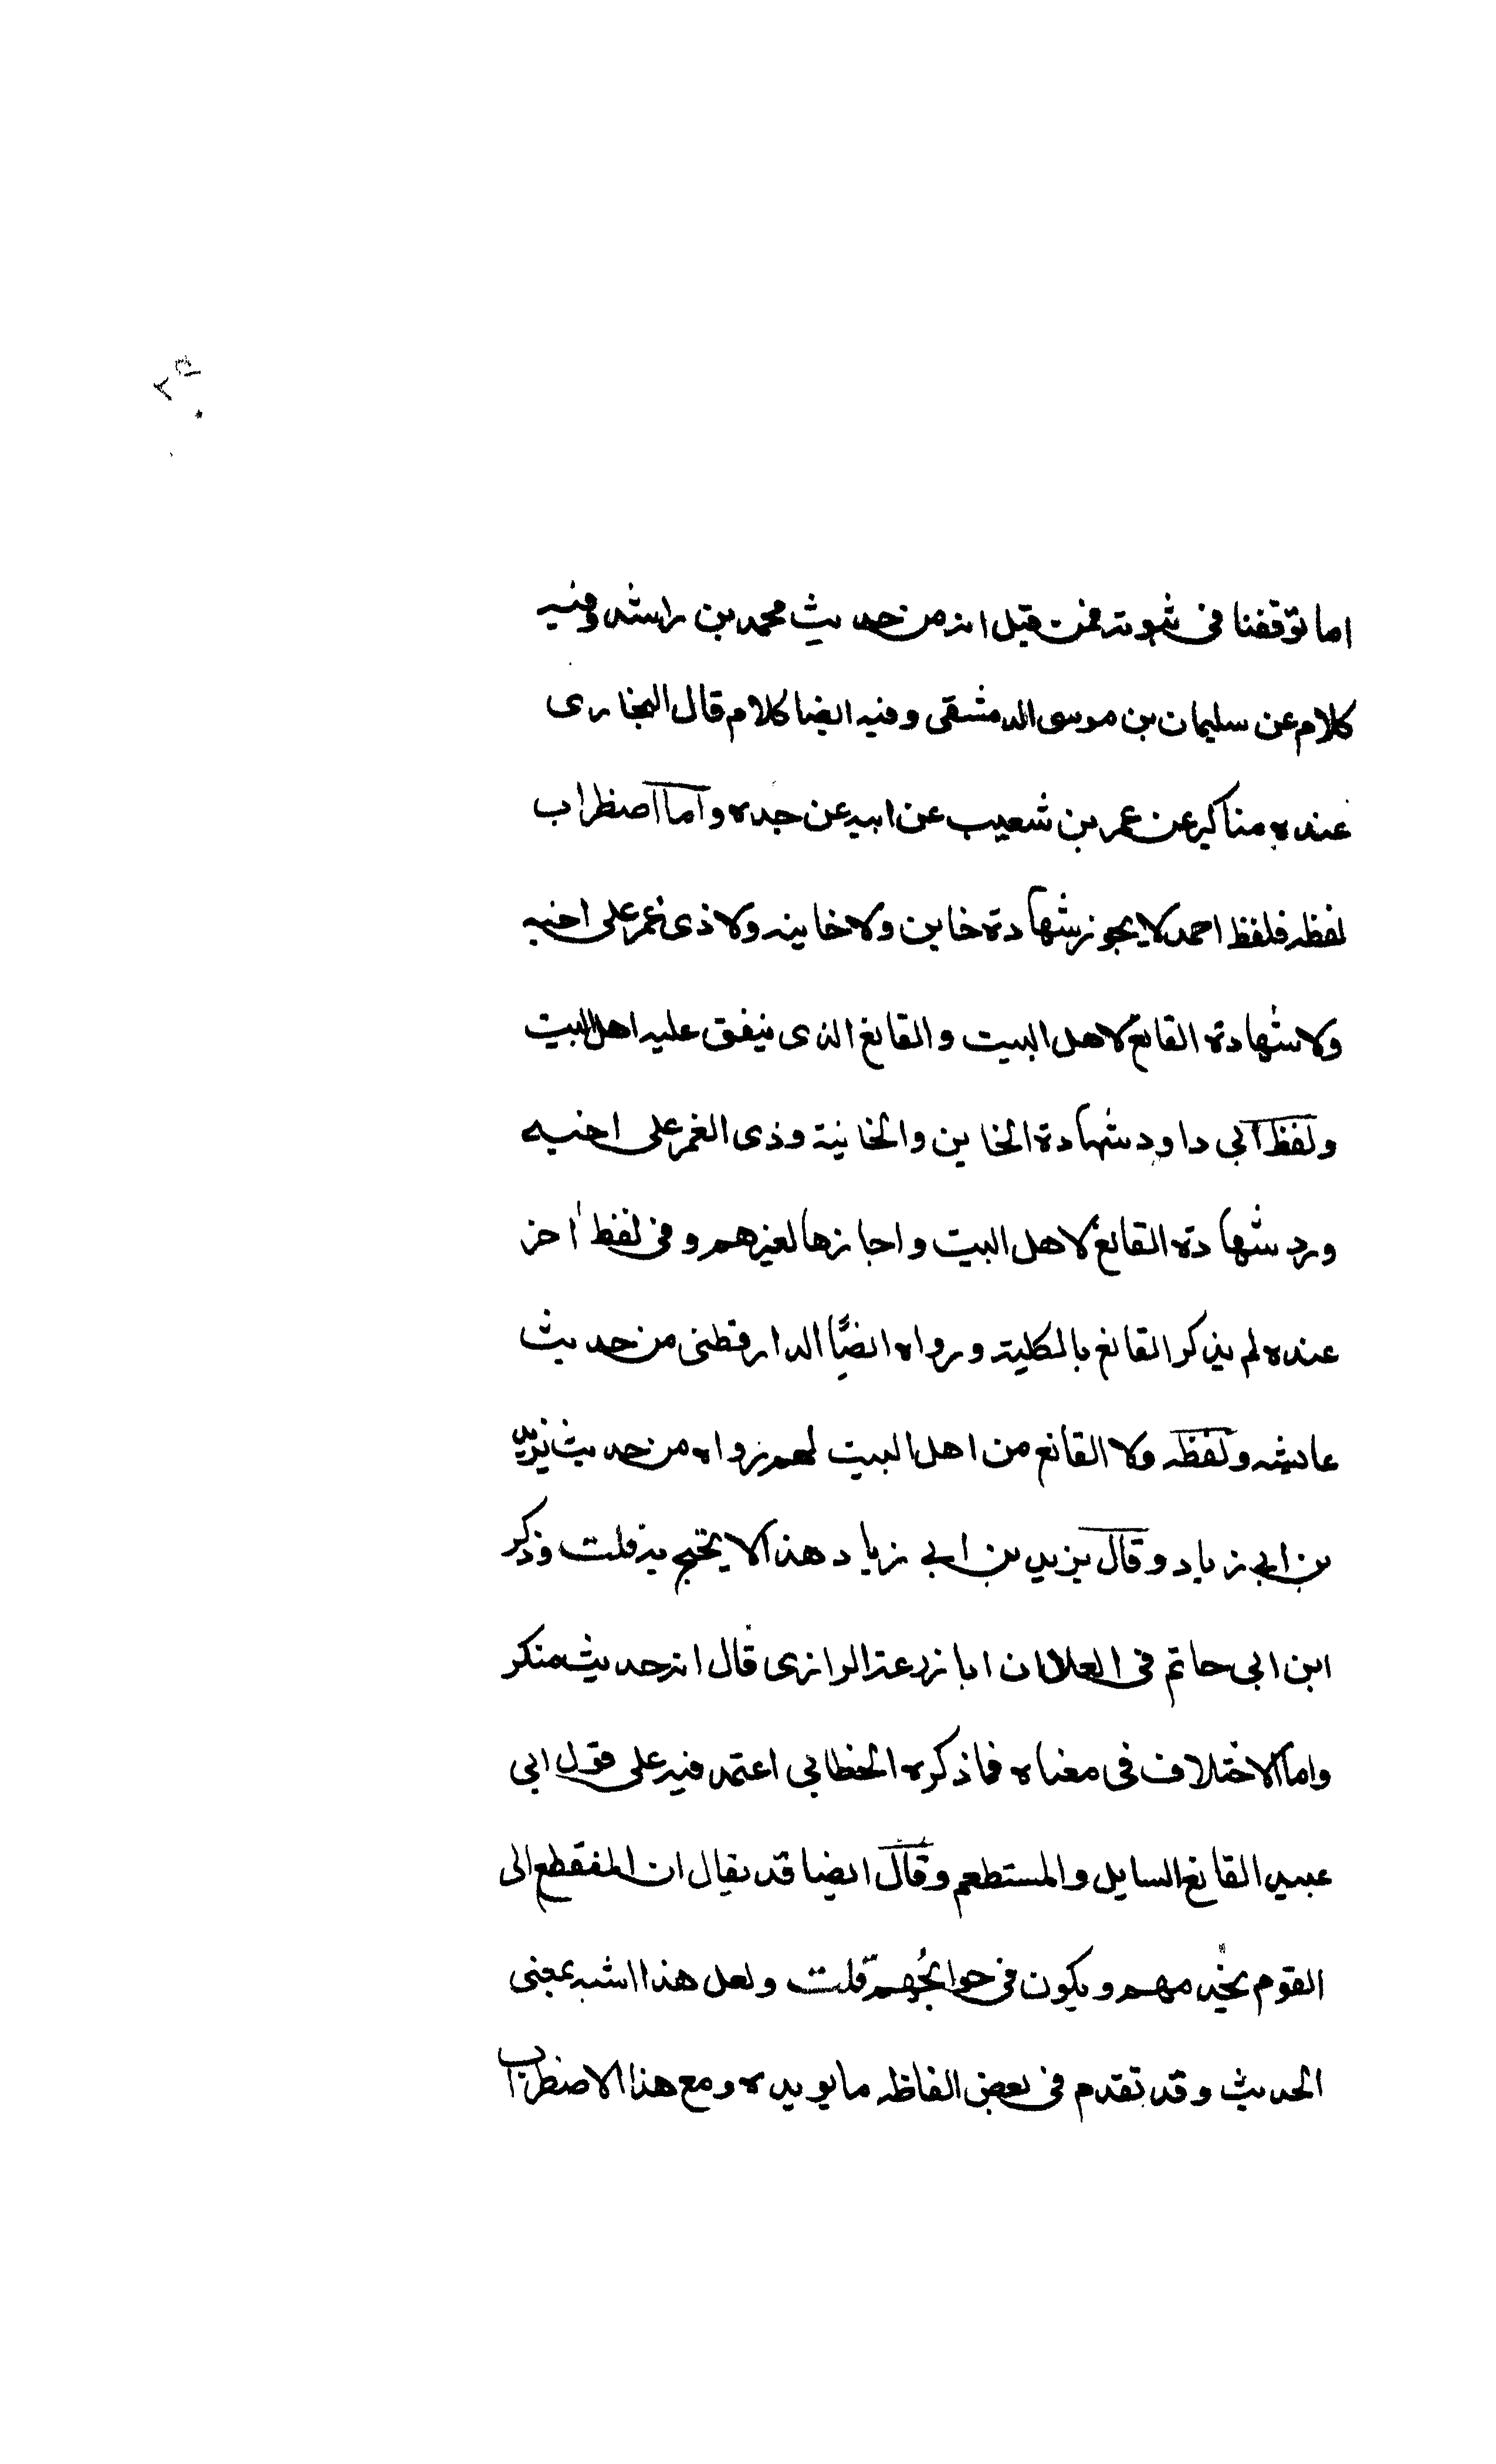 اما توقفنا فى ثبوته فمن قبل انه من حديث محمد بن راشد وفيه
كلام عن سليمان بن موسى الدمشقى وفيه ايضا كلام قال البخارى
عنده مناكير عن عمر بن شعيب عن ابيه عن جده واما اضطراب
لفظه فلفظ احمد لا يجوز شهادة خاين ولا خاينه ولا ذى غمر على اخيه
ولا شهادة القانع لاهل البيت والقانع الذى ينفق عليه اهل البيت
ولفظ ابى داود شهادة الخاين والخاينة وذى الغمر على اخيه
ورد شهادة القانع لاهل البيت واجازها لغيرهم وفى لفظ اخر
عنده لم يذكر القانع بالكلية ورواه ايضًا الدارقطنى من حديث
عايشه ولفظه ولا القانع من اهل البيت لهم رواه من حديث يزيد
بن ابى زياد وقال يزيد بن ابى زياد هذا لا يحتج به قلت وذكر
ابن ابى حاتم فى العلل ان ابا زرعة الرازى قال انه حديث منكر
واما الاختلاف فى معناه فما ذكره الخطابى اعتمد فيه على قول ابى
عبيد القانع السايل والمستطعم وقال ايضا قد يقال ان المنقطع الى
القوم يخدمهم ويكون فى حوايجهم قلت ولعل هذا اشبه بمعنى
الحديث وقد تقدم فى بعض الفاظه ما يويده ومع هذا الاضطراب